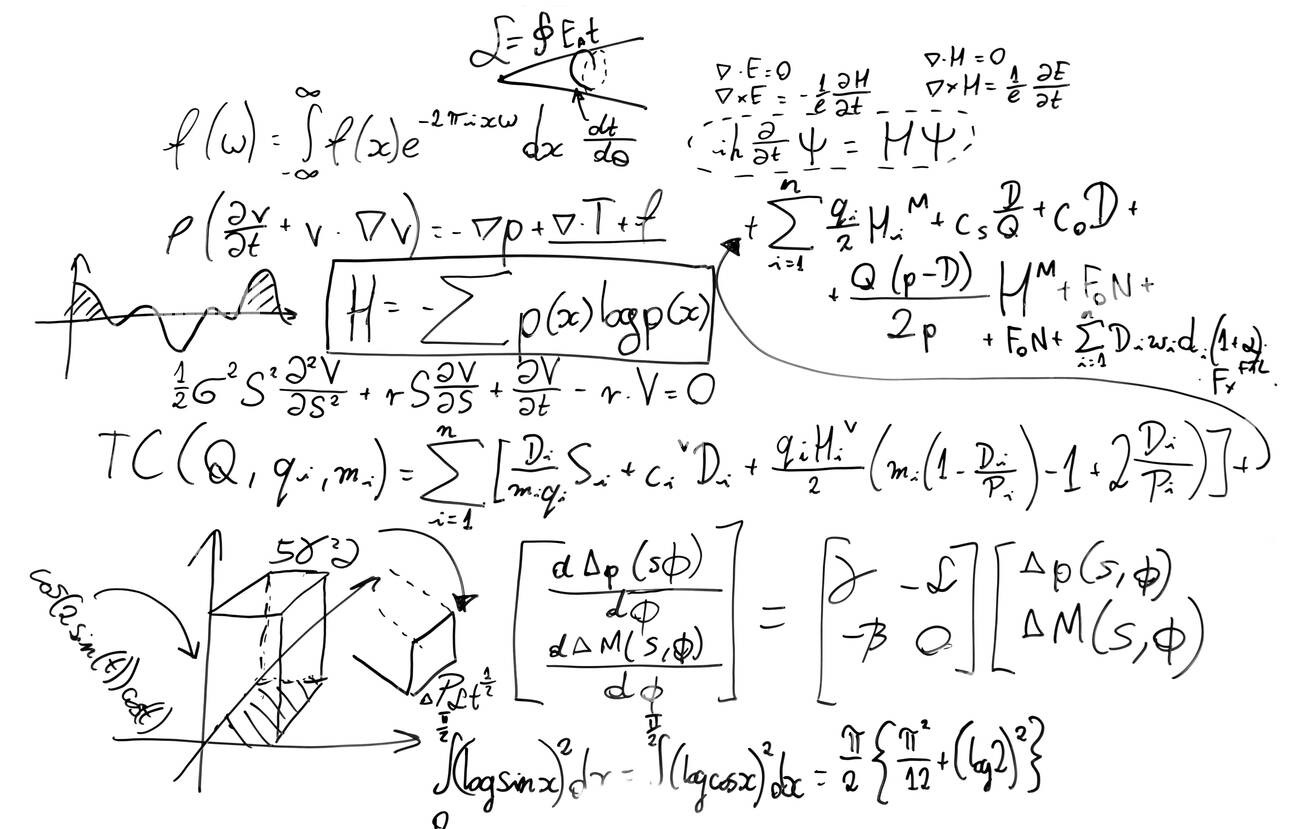 ℒ = ∮ E₀t
∇·E=0
∇×E = -1/e ∂H/∂t
∇·H=0
∇×H = 1/e ∂E/∂t
f(ω) = ∫_{-∞}^{∞} f(x)e^{-2πixω} dx
dt/dθ
ih ∂/∂t Ψ = HΨ
ρ(∂v/∂t + v · ∇v) = -∇p + ∇·T + f
+ ∑_{i=1}^{n} q_i/2 H_i^M + C_s D/Q + C_o D +
+ Q(p-D)/2p H^M + F_oN +
+ F_oN + ∑_{i=1}^{n} D_i w_i d_i (1+α)
H = -∑ p(x) log p(x)
1/2 σ² S² ∂²V/∂S² + rS ∂V/∂S + ∂V/∂t - r·V = 0
TC(Q, q_i, m_i) = ∑_{i=1}^{n} [D_i/(m_i q_i) S_i + c_i^v D_i + q_i H_i^v/2 (m_i(1 - D_i/P_i) - 1 + 2 D_i/P_i)] +
[dΔp(sϕ)/dϕ
dΔM(s,ϕ)/dϕ] = [γ -ℒ
-β 0] [Δp(s,ϕ)
ΔM(s,ϕ)
∫_0^{π/2} (log sin x)² dx = ∫^{π/2} (log cos x)² dx = π/2 {π²/12 + (log 2)²}